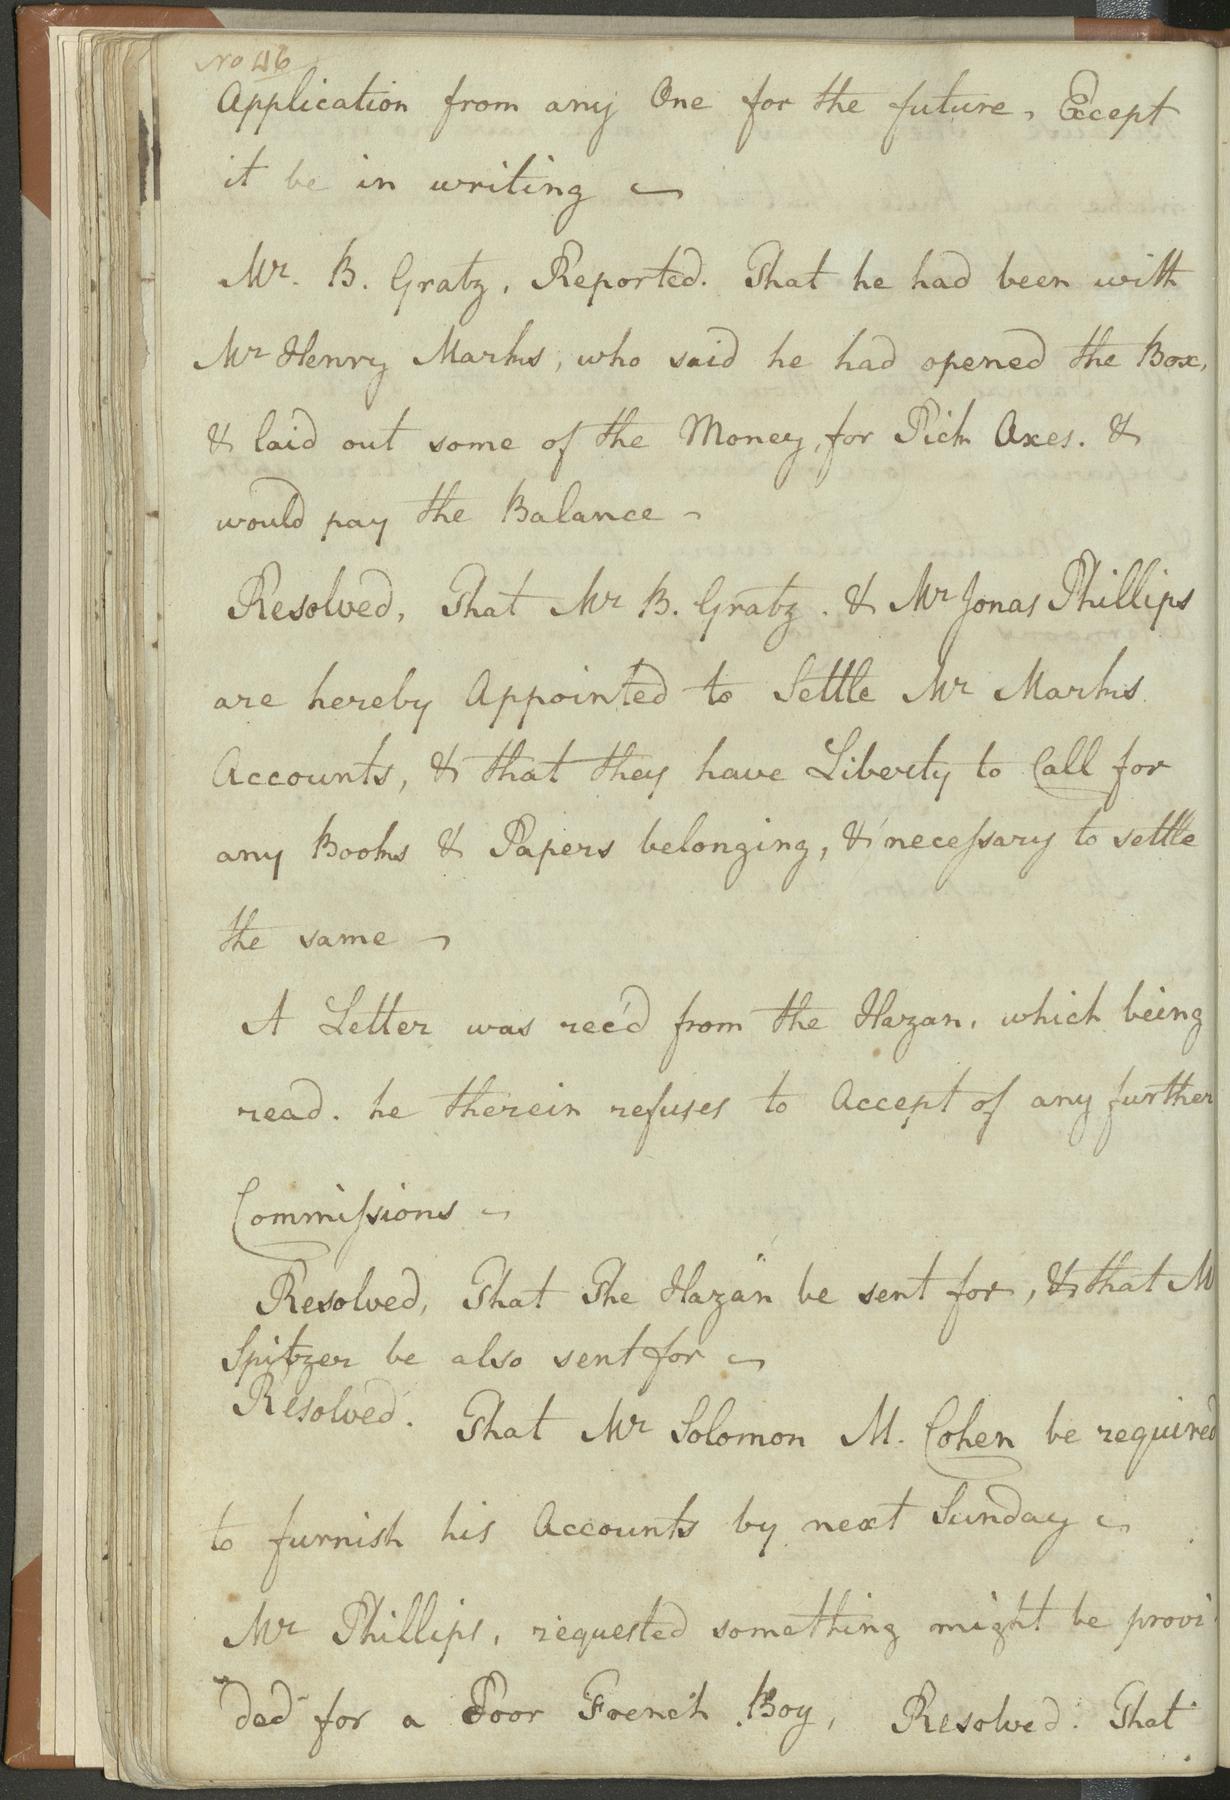 No 46
Application from any One for the future, Except
it be in writing
Mr. B. Gratz, Reported. That he had been with
Mr Henry Marks, who said he had opened the Box,
& laid out some of the Money, for Pick Axes. &
would pay the Balance
Resolved, That Mr B. Gratz. & Mr Jonas Phillips
are hereby Appointed to Settle Mr Marks
Accounts, & that they have Liberty to Call for
any Books & Papers belonging, & necessary to settle
the same
A Letter was rec'd from the Hazan, which being
read. he therein refuses to Accept of any further
Commissions
Resolved, That The Hazan be sent for, & that M
Spitzer be also sent for
Resolved. That Mr Solomon M. Cohen be required
to furnish his Accounts by next Sunday
Mr Phillips, requested something might be provi
"ded" for a Poor French Boy, Resolved. That